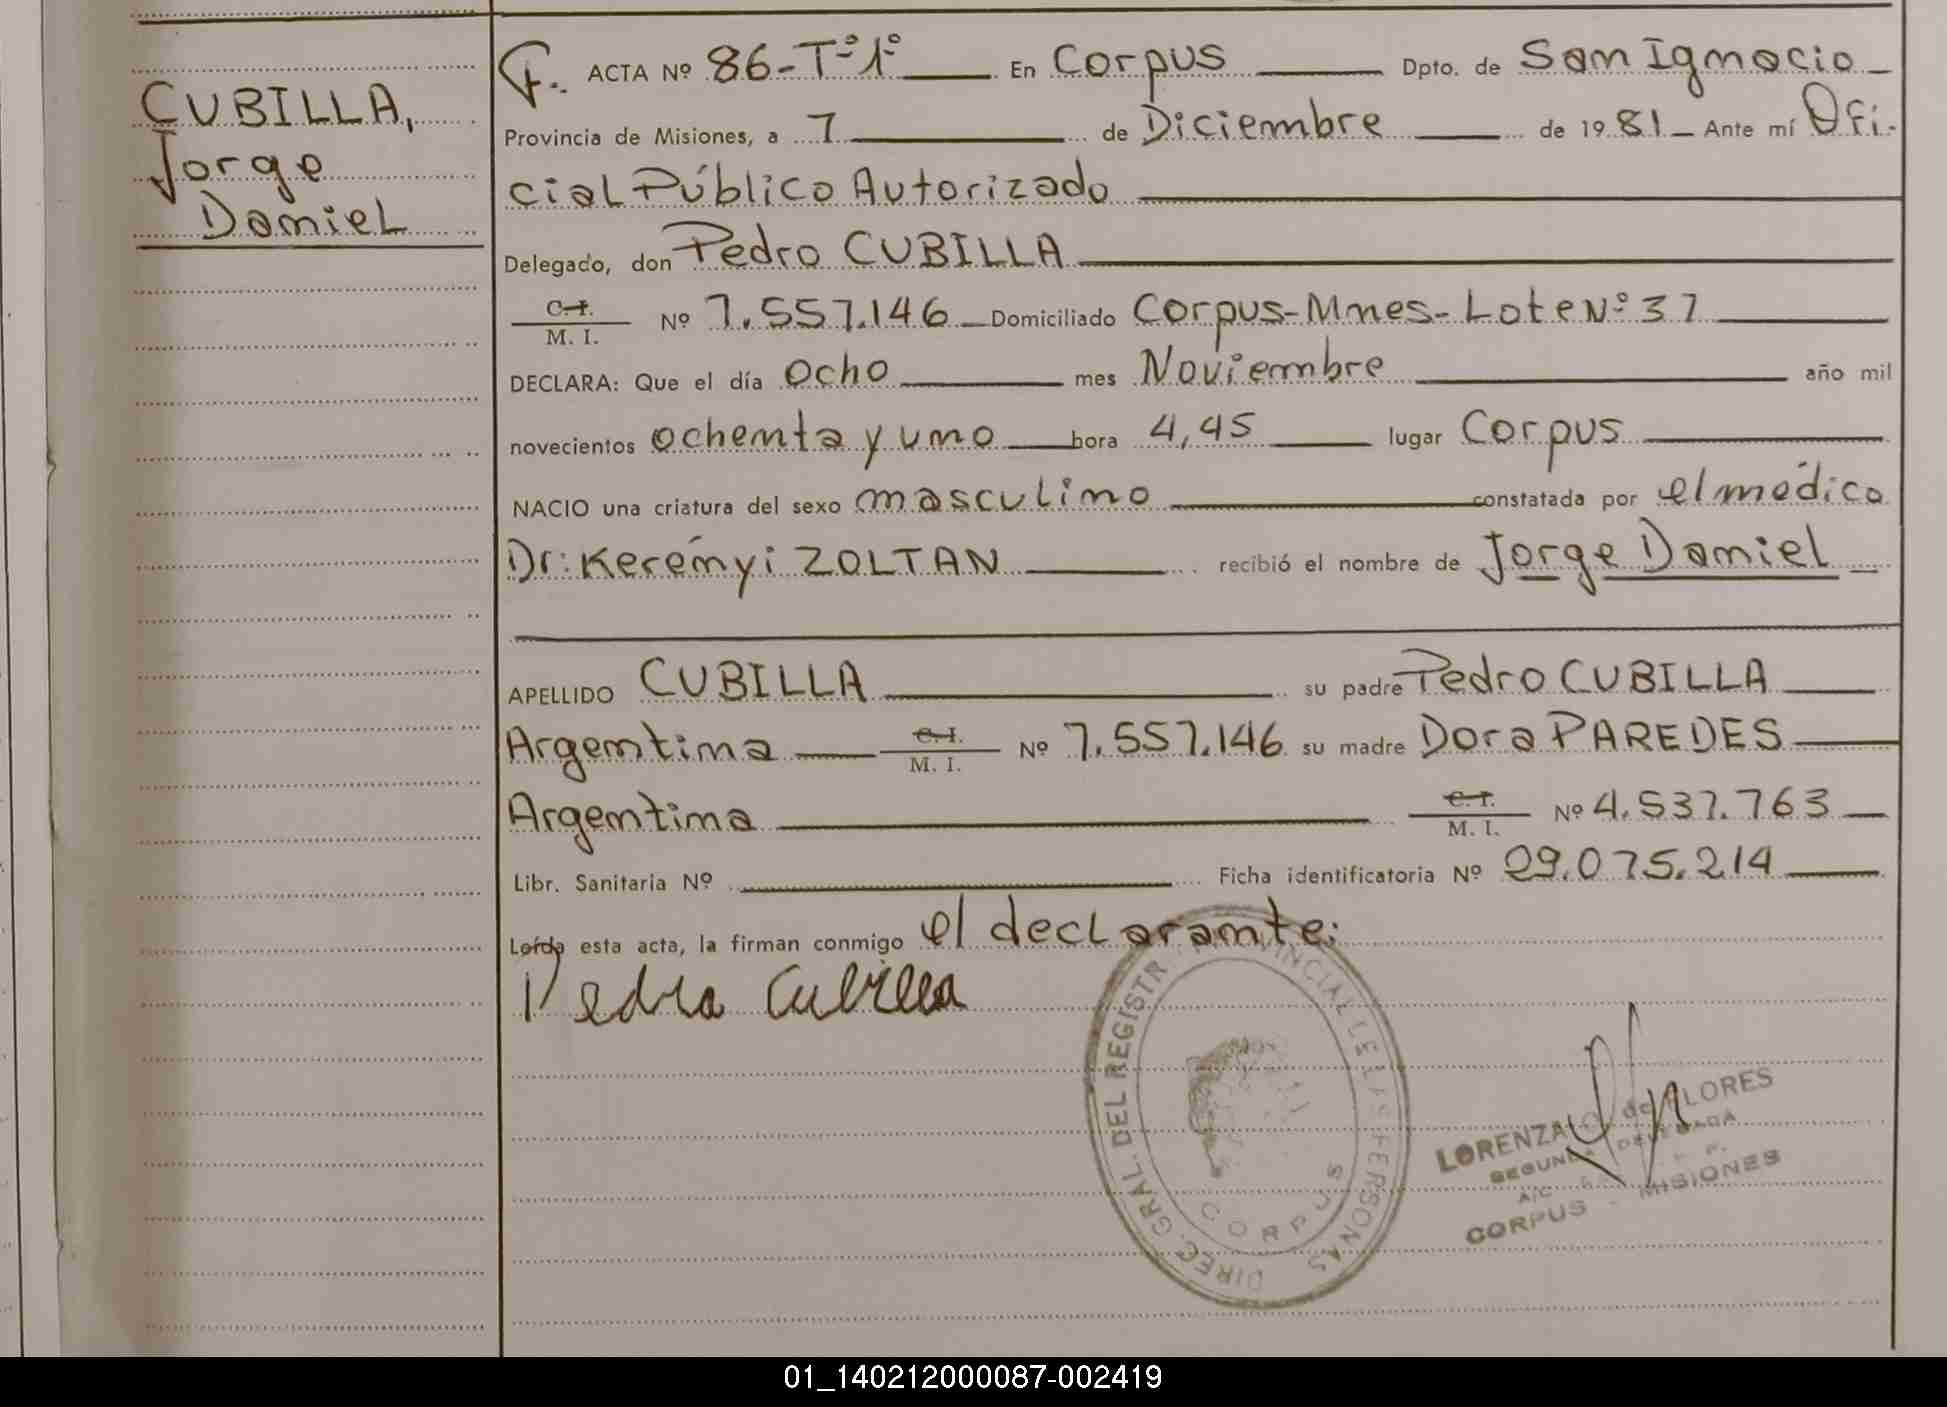 CUBILLA,
Jorge
Daniel
F. ACTA Nº 86-Tº1º En Corpus Dpto. de San Ignacio
Provincia de Misiones, a 7 de Diciembre de 1981 Ante mí Ofi-
cial Público Autorizado
Delegado, don Pedro CUBILLA
C.I.
M. I. Nº 7.557.146 Domiciliado Corpus-Mnes-Lote Nº 37
DECLARA: Que el día ocho mes Noviembre año mil
novecientos ochenta y uno hora 4,45 lugar Corpus
NACIO una criatura del sexo masculino constatada por el médico
Dr: Kerényi ZOLTAN recibió el nombre de Jorge Daniel
APELLIDO CUBILLA su padre Pedro CUBILLA
Argentina C.I.
M. I. Nº 7.557.146 su madre Dora PAREDES
Argentina C.I.
M. I. Nº 4.537.763
Libr. Sanitaria Nº Ficha identificatoria Nº 29.075.214
Leída esta acta, la firman conmigo el declarante:
Pedro Cubilla
DIREC. GRAL. DEL REGISTR PROVINCIAL DE LAS PERSONAS
CORPUS
LORENZA de FLORES
SEGUNDA DELEGADA
A/C
CORPUS - MISIONES
01_140212000087-002419